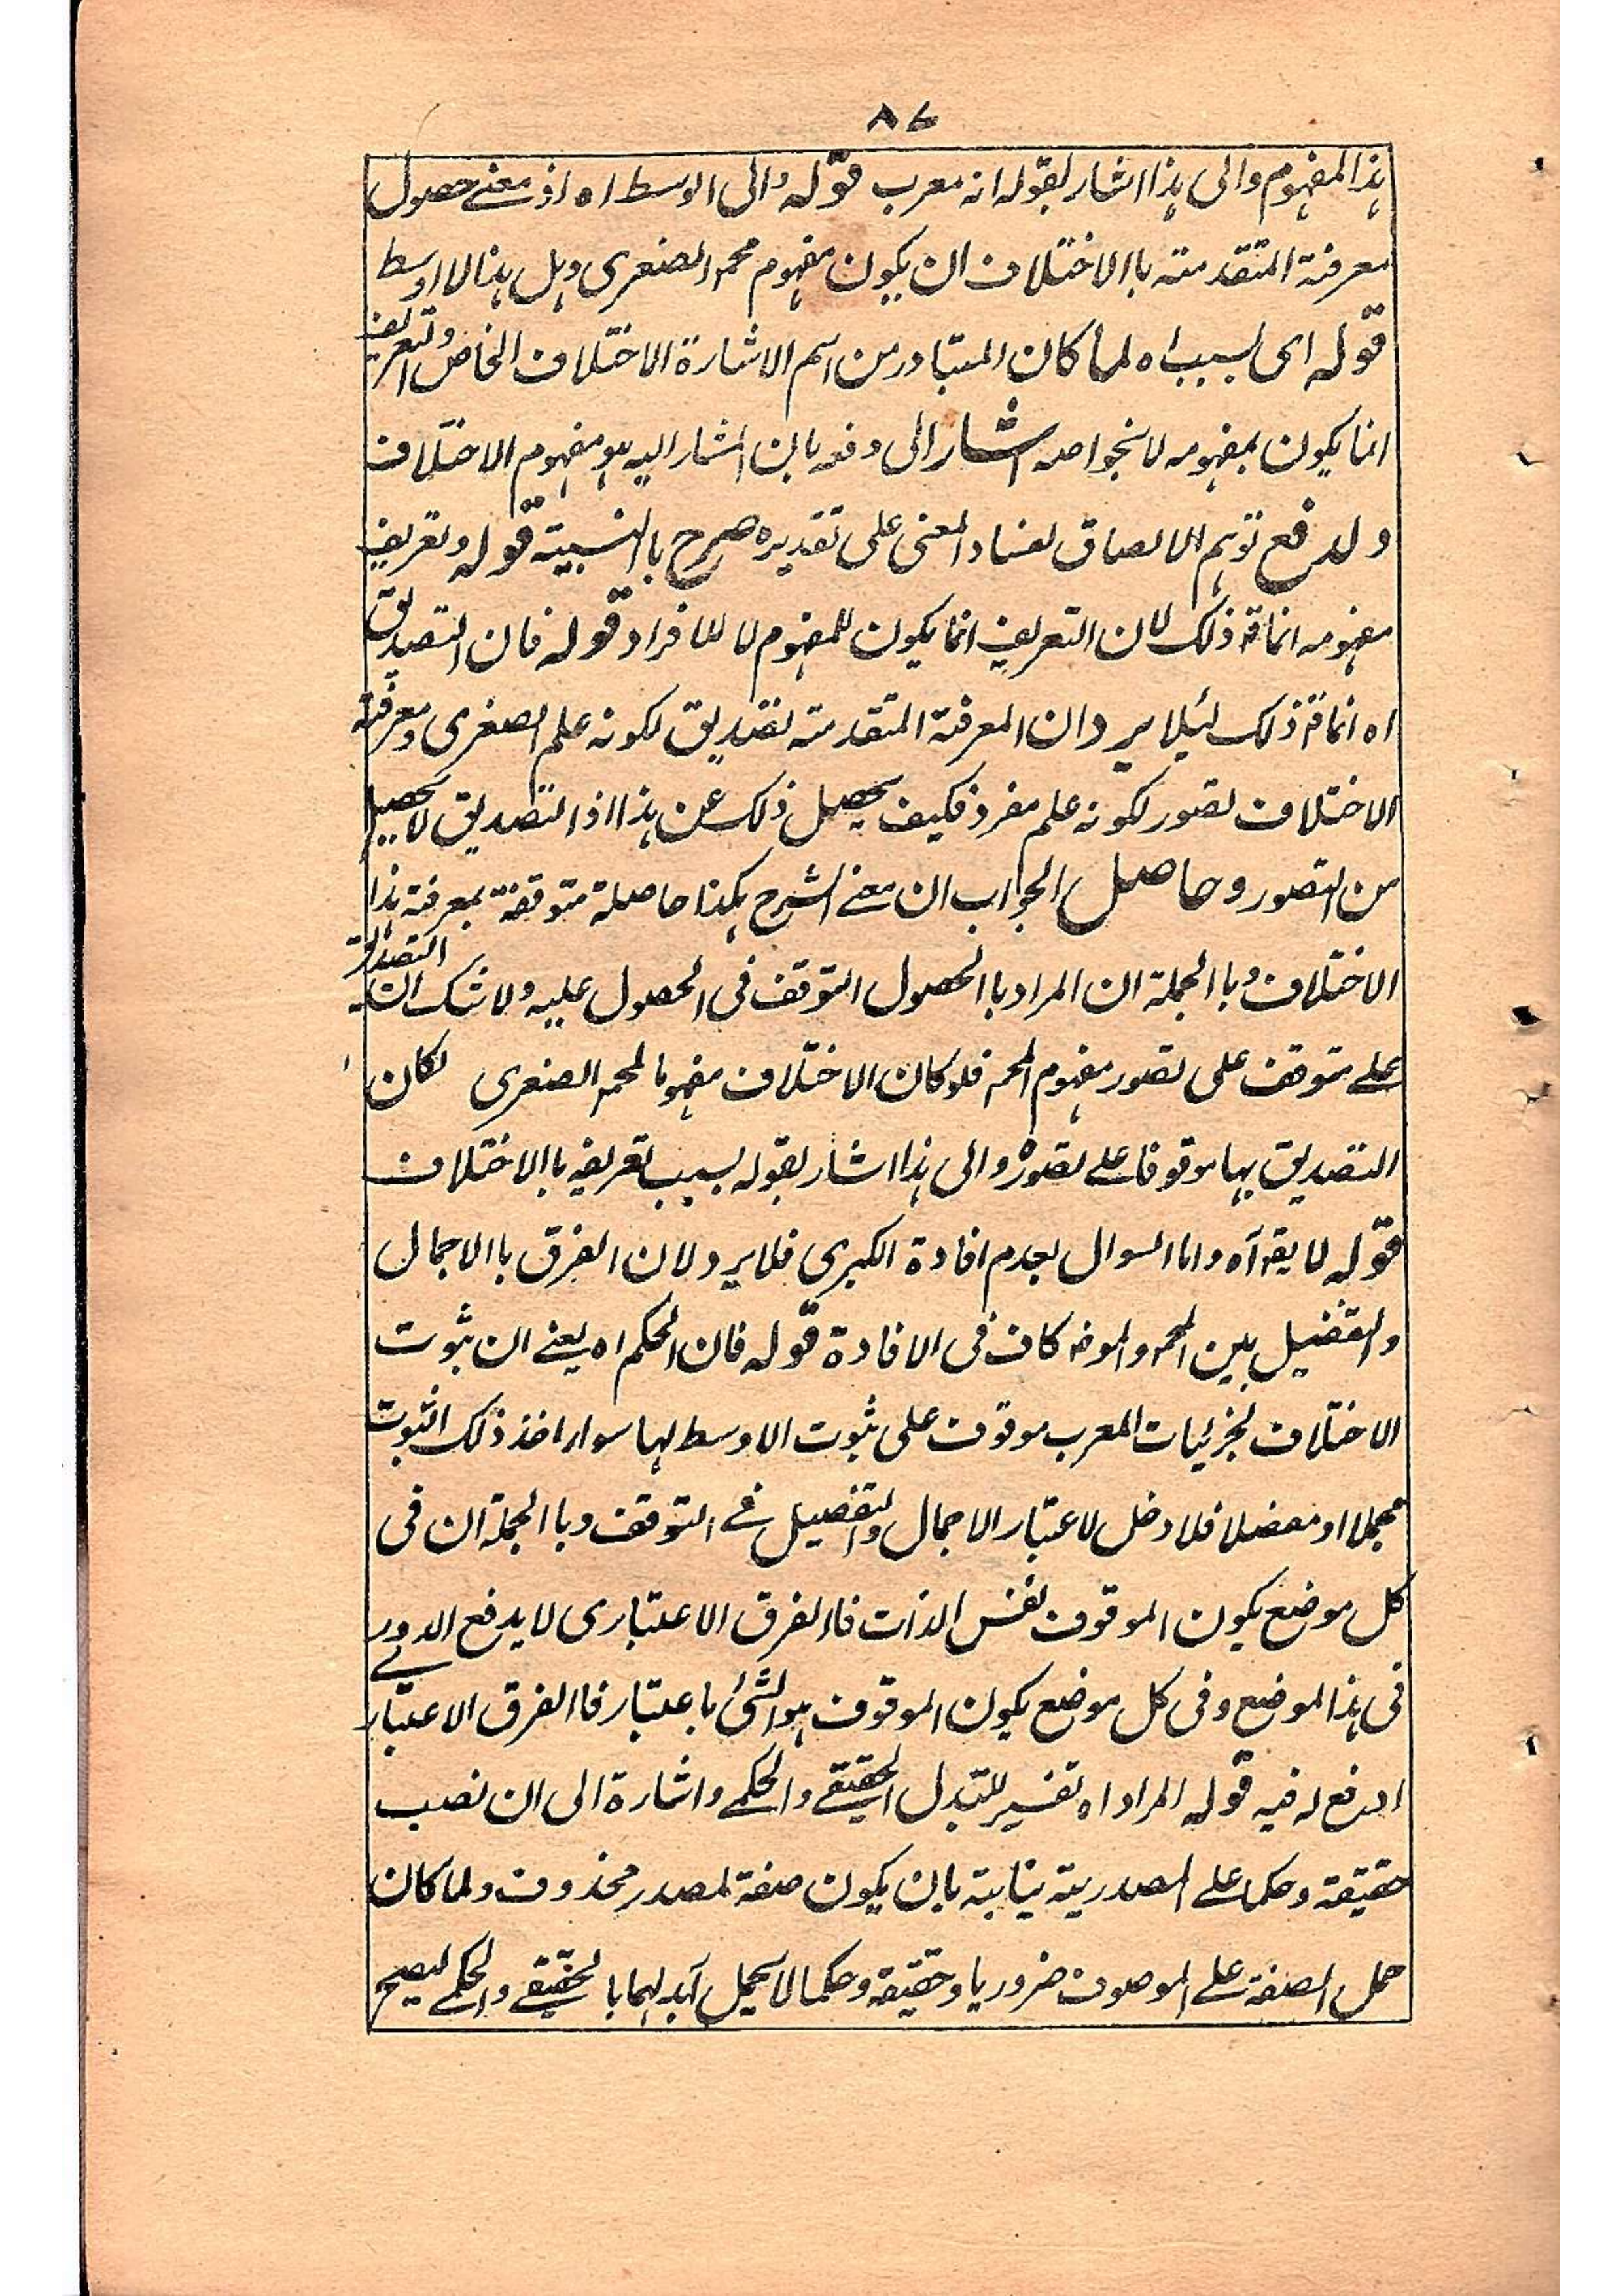 ٨٧
ہذا المفہوم والی ہذا اشار بقولہ انہ معرب قولہ والی الاوسط اہ اذ معنے حصول
معرفتہ المتقدمتہ باالاختلاف ان یکون مفہوم محمہ الصغری وہل ہذا الا اوسط
قولہ ای بسبب اہ لما کان المتبادر من اسم الاشارۃ الاختلاف الخاص والتعریف
انما یکون بمفہومہ لا بخواصہ اشار الی دفعہ بان المشار الیہ ہو مفہوم الاختلاف
ولدفع توہم الالصاق لفساد المعنی علی تقدیرہ صرح باالسببیتہ قولہ وتعریف
مفہومہ انما قہ ذلک لان التعریف انما یکون للمفہوم لا للافراد قولہ فان التصدیق
اہ انما قہ ذلک لئیلا یرد ان المعرفتہ المتقدمتہ تصدیق لکونہ علم الصغری ومعرفتہ
الاختلاف تصور لکونہ علم مفرد فکیف یحصیل ذلک عن ہذا اذ التصدیق لا یحصیل
من التصور وحاصل الجواب ان معنے الشرح ہکذا حاصلۃ متوقفۃ بمعرفۃ ہذا
الاختلاف وباالجملۃ ان المراد باالحصول التوقف فی الحصول علیہ ولا شک ان التصدیق
علے متوقف علی تصور مفہوم المحمہ فلو کان الاختلاف مفہوما لمحمہ الصغری لکان
التصدیق بہا موقوفا علے تصورہ والی ہذا اشار بقولہ بسبب تعریفہ باالاختلاف
قولہ لا یقہ آہ واما السوال بعدم افادۃ الکبری فلا یرد لان الفرق باالاجمال
والتفضیل بین المحمہ والموضہ کاف فی الافادۃ قولہ فان الحکم اہ یعنے ان ثبوت
الاختلاف لجزئیات المعرب موقوف علی ثبوت الاوسط لہا سواء اخذ ذلک الثبوت
مجملا او مفصلا فلا دخل لاعتبار الاجمال والتفصیل فے التوقف وباالجملۃ ان فی
کل موضع یکون الموقوف نفس الذات فاالفرق الاعتباری لا یدفع الدور
فی ہذا الموضع وفی کل موضع یکون الموقوف ہو الشئ باعتبار فاالفرق الاعتباری
ادفع لہ فیہ قولہ المراد اہ تفسیر للتبدل الحقیقے والحکمے واشارۃ الی ان نصب
حقیقۃ وحکما علے المصدریتہ نیابیتہ بان یکون صفۃ لمصدر محذوف ولما کان
حمل الصفۃ علے الموصوف ضروریا وحقیقۃ وحکما لا یحمل ابدلہما باالحقیقے والحکمے لیصح